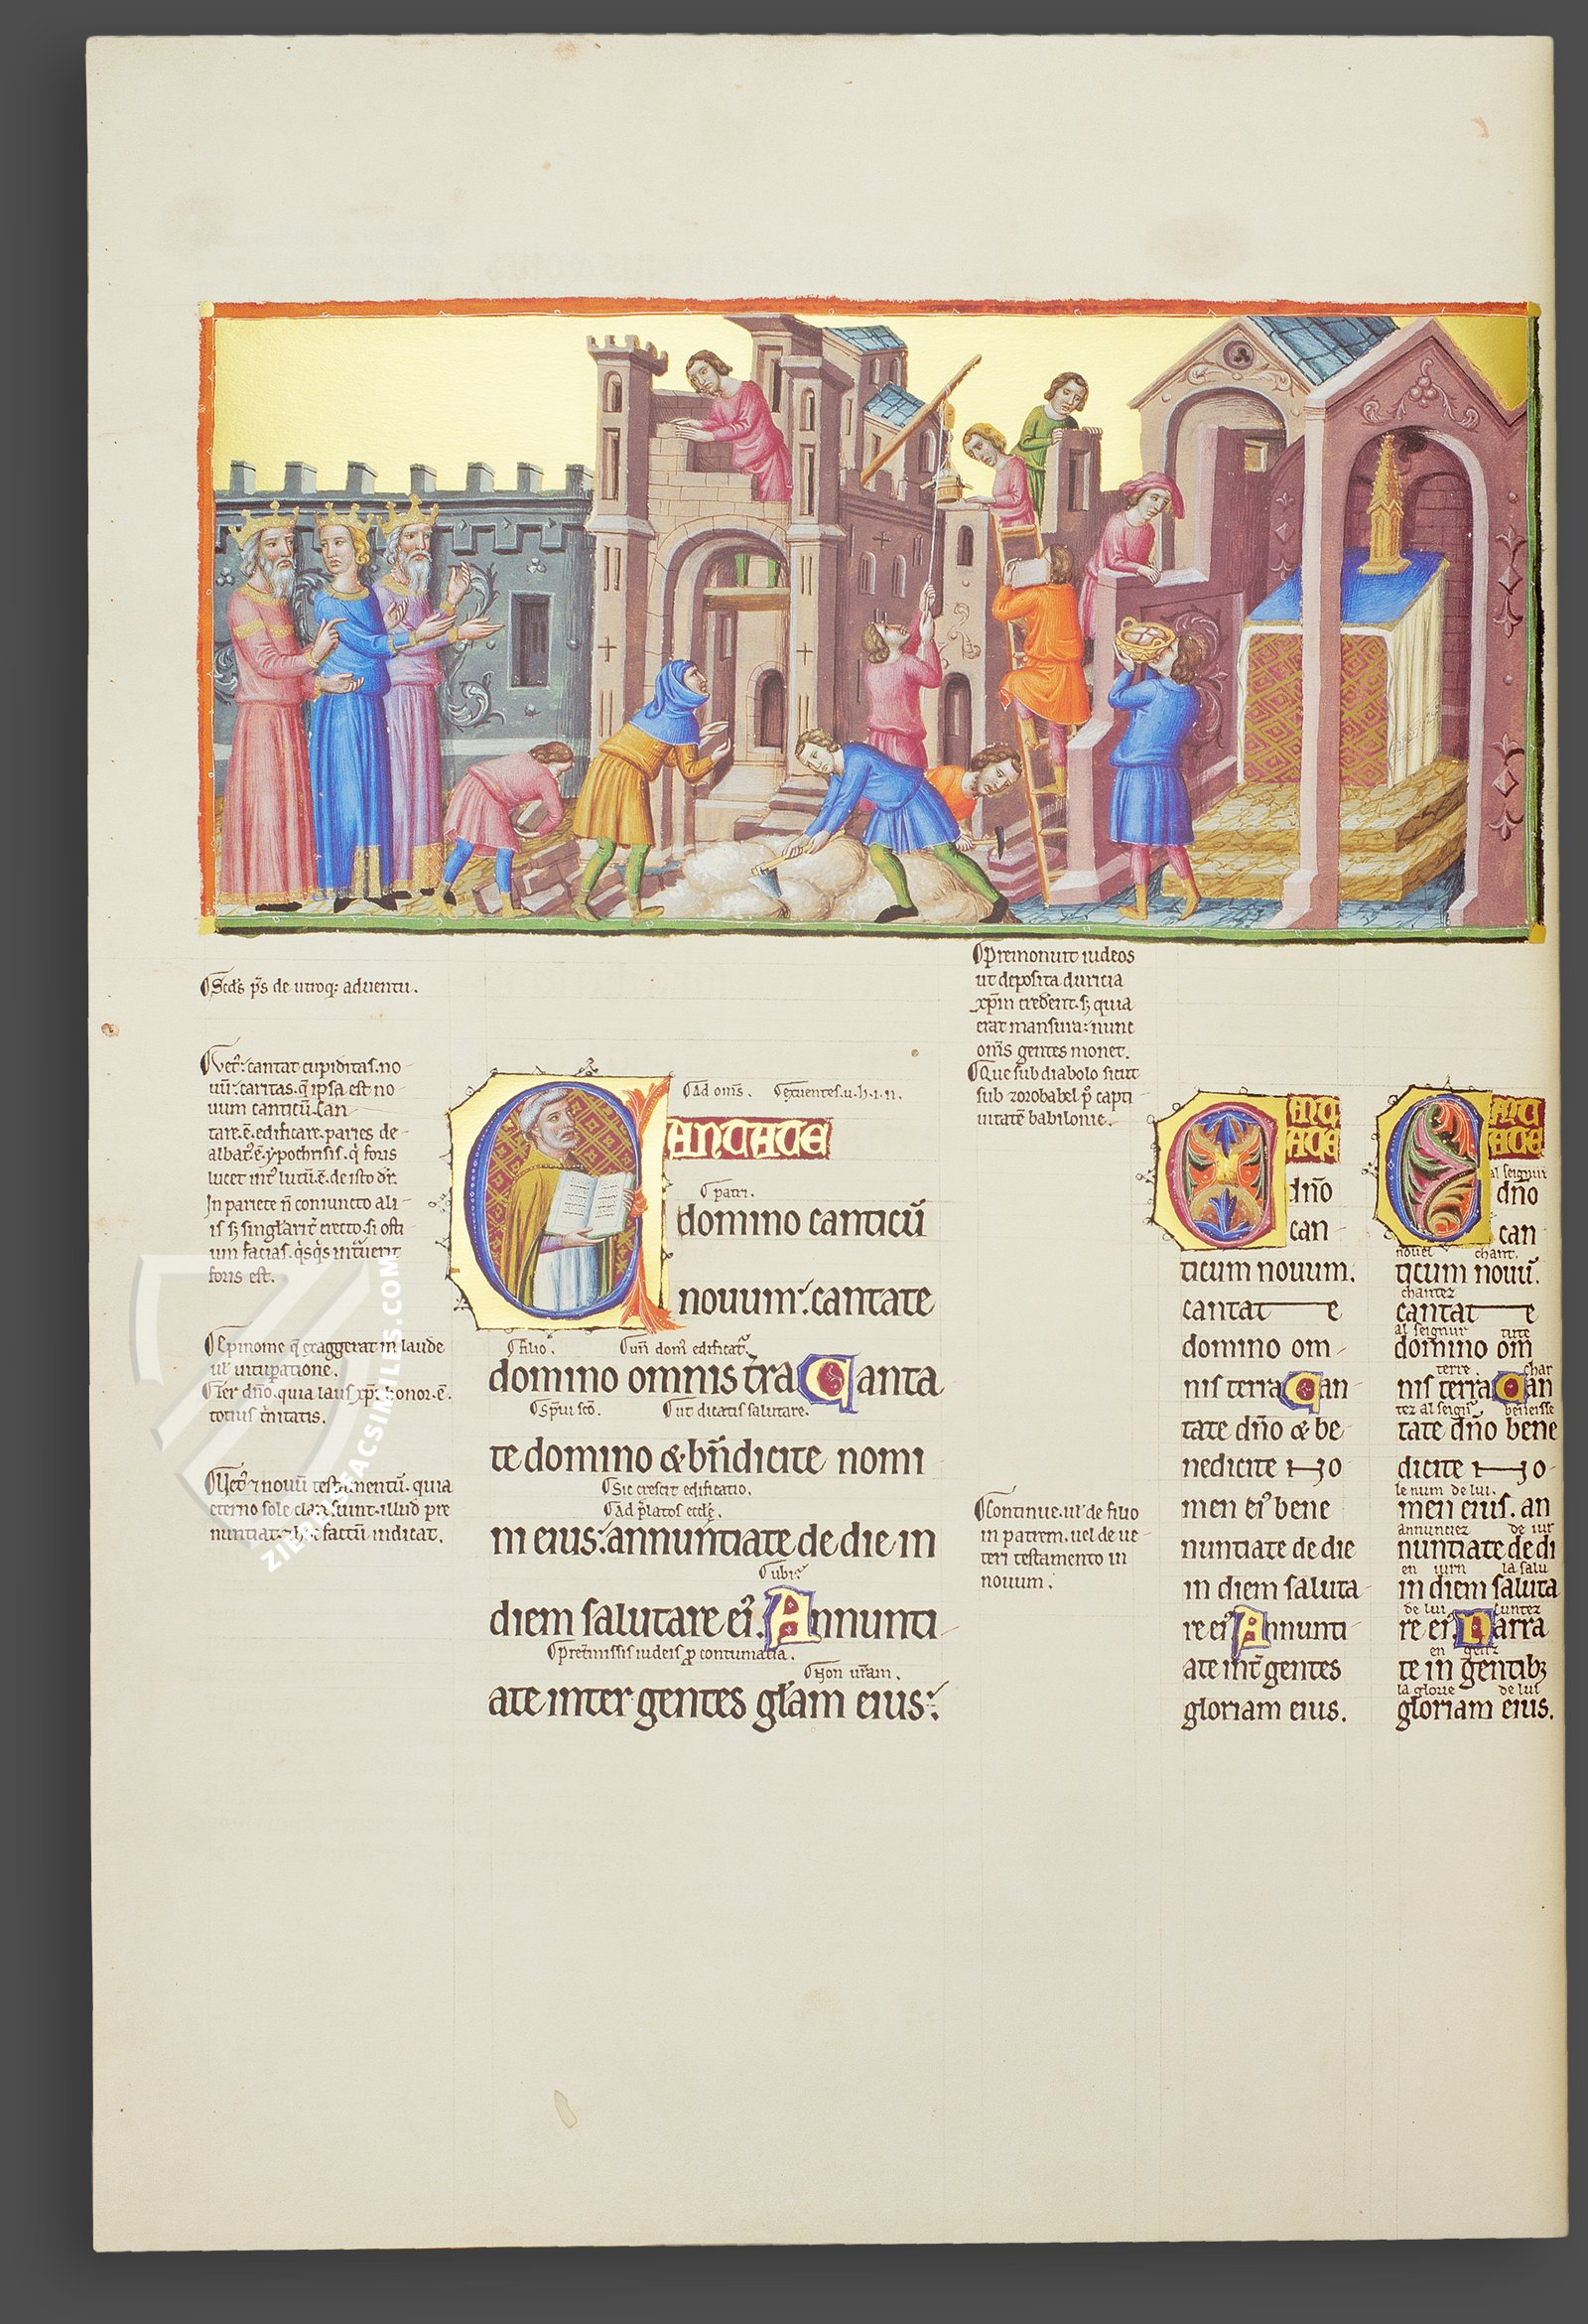 Scd's ps de utroq: aduentu.
Vet: cantat cupiditas. no
uū: caritas. q̄ ipsa est no
uum canticū. Can
tare. ē. edificare. paries de
albat' ē. ypochrisis. q̇ foris
lucet int' lutū. ē. de isto dr̄.
In pariete n̄ coniuncto ali
foris est.
ul' uitupatione.
totius t̄nitatis.
Vet' ⁊ nouū testamentū. quia
eterno sole clari sunt. illud pre
nuntiat. ⁊ hoc factū indicat.
Ad om̄s. Exuentes. u. h. i. n.
CANTATE
patri.
domino canticū
nouum: cantate
filio. un̄ dom' edificat'.
domino omnis t̄ra Canta
Spūi scō. Ut dicatis salutare.
te domino & bn̄dicite nomi
Sic crescit edificatio.
Ad p̄latos eccl'e.
ni eius: annuntiate de die in
ubi:
diem salutare ei'. Annunti
pret'missis iudeis p contumacia.
Non ur̄am.
ate inter gentes gl̄am eius:
Premonuit iudeos
ut deposita duricia
xp̄m crederēt. s; quia
erat mansura: nunc
om̄s gentes monet.
Que sub diabolo sicut
sub zorobabel p' capti
uitatē babilonie.
Continue. ul' de filio
in patrem. uel de ue
teri testamento in
nouum.
CANT
ATE
dn̄o
can
ticum nouum.
cantat e
domino om
nis terra Can
tate dn̄o & be
nedicite no
men ei' bene
nuntiate de die
in diem saluta
re ei' Annunti
ate int' gentes
gloriam eius.
CANT
ATE
al seignur
dn̄o
can
nouel chant.
ticum nouū.
chantez
cantat e
al seignur tute
domino om
terre. char
nis terra Can
tez al seign' beneisse
tate dn̄o bene
dicite no
le num de lui.
men eius. an
annunciez de iur
nuntiate de di
en iurn la salu
in diem saluta
de lui cuntez
re ei' Narra
en genz
te in gentib;
la glorie de lui
gloriam eius.
ZIEREIS FACSIMILES.COM